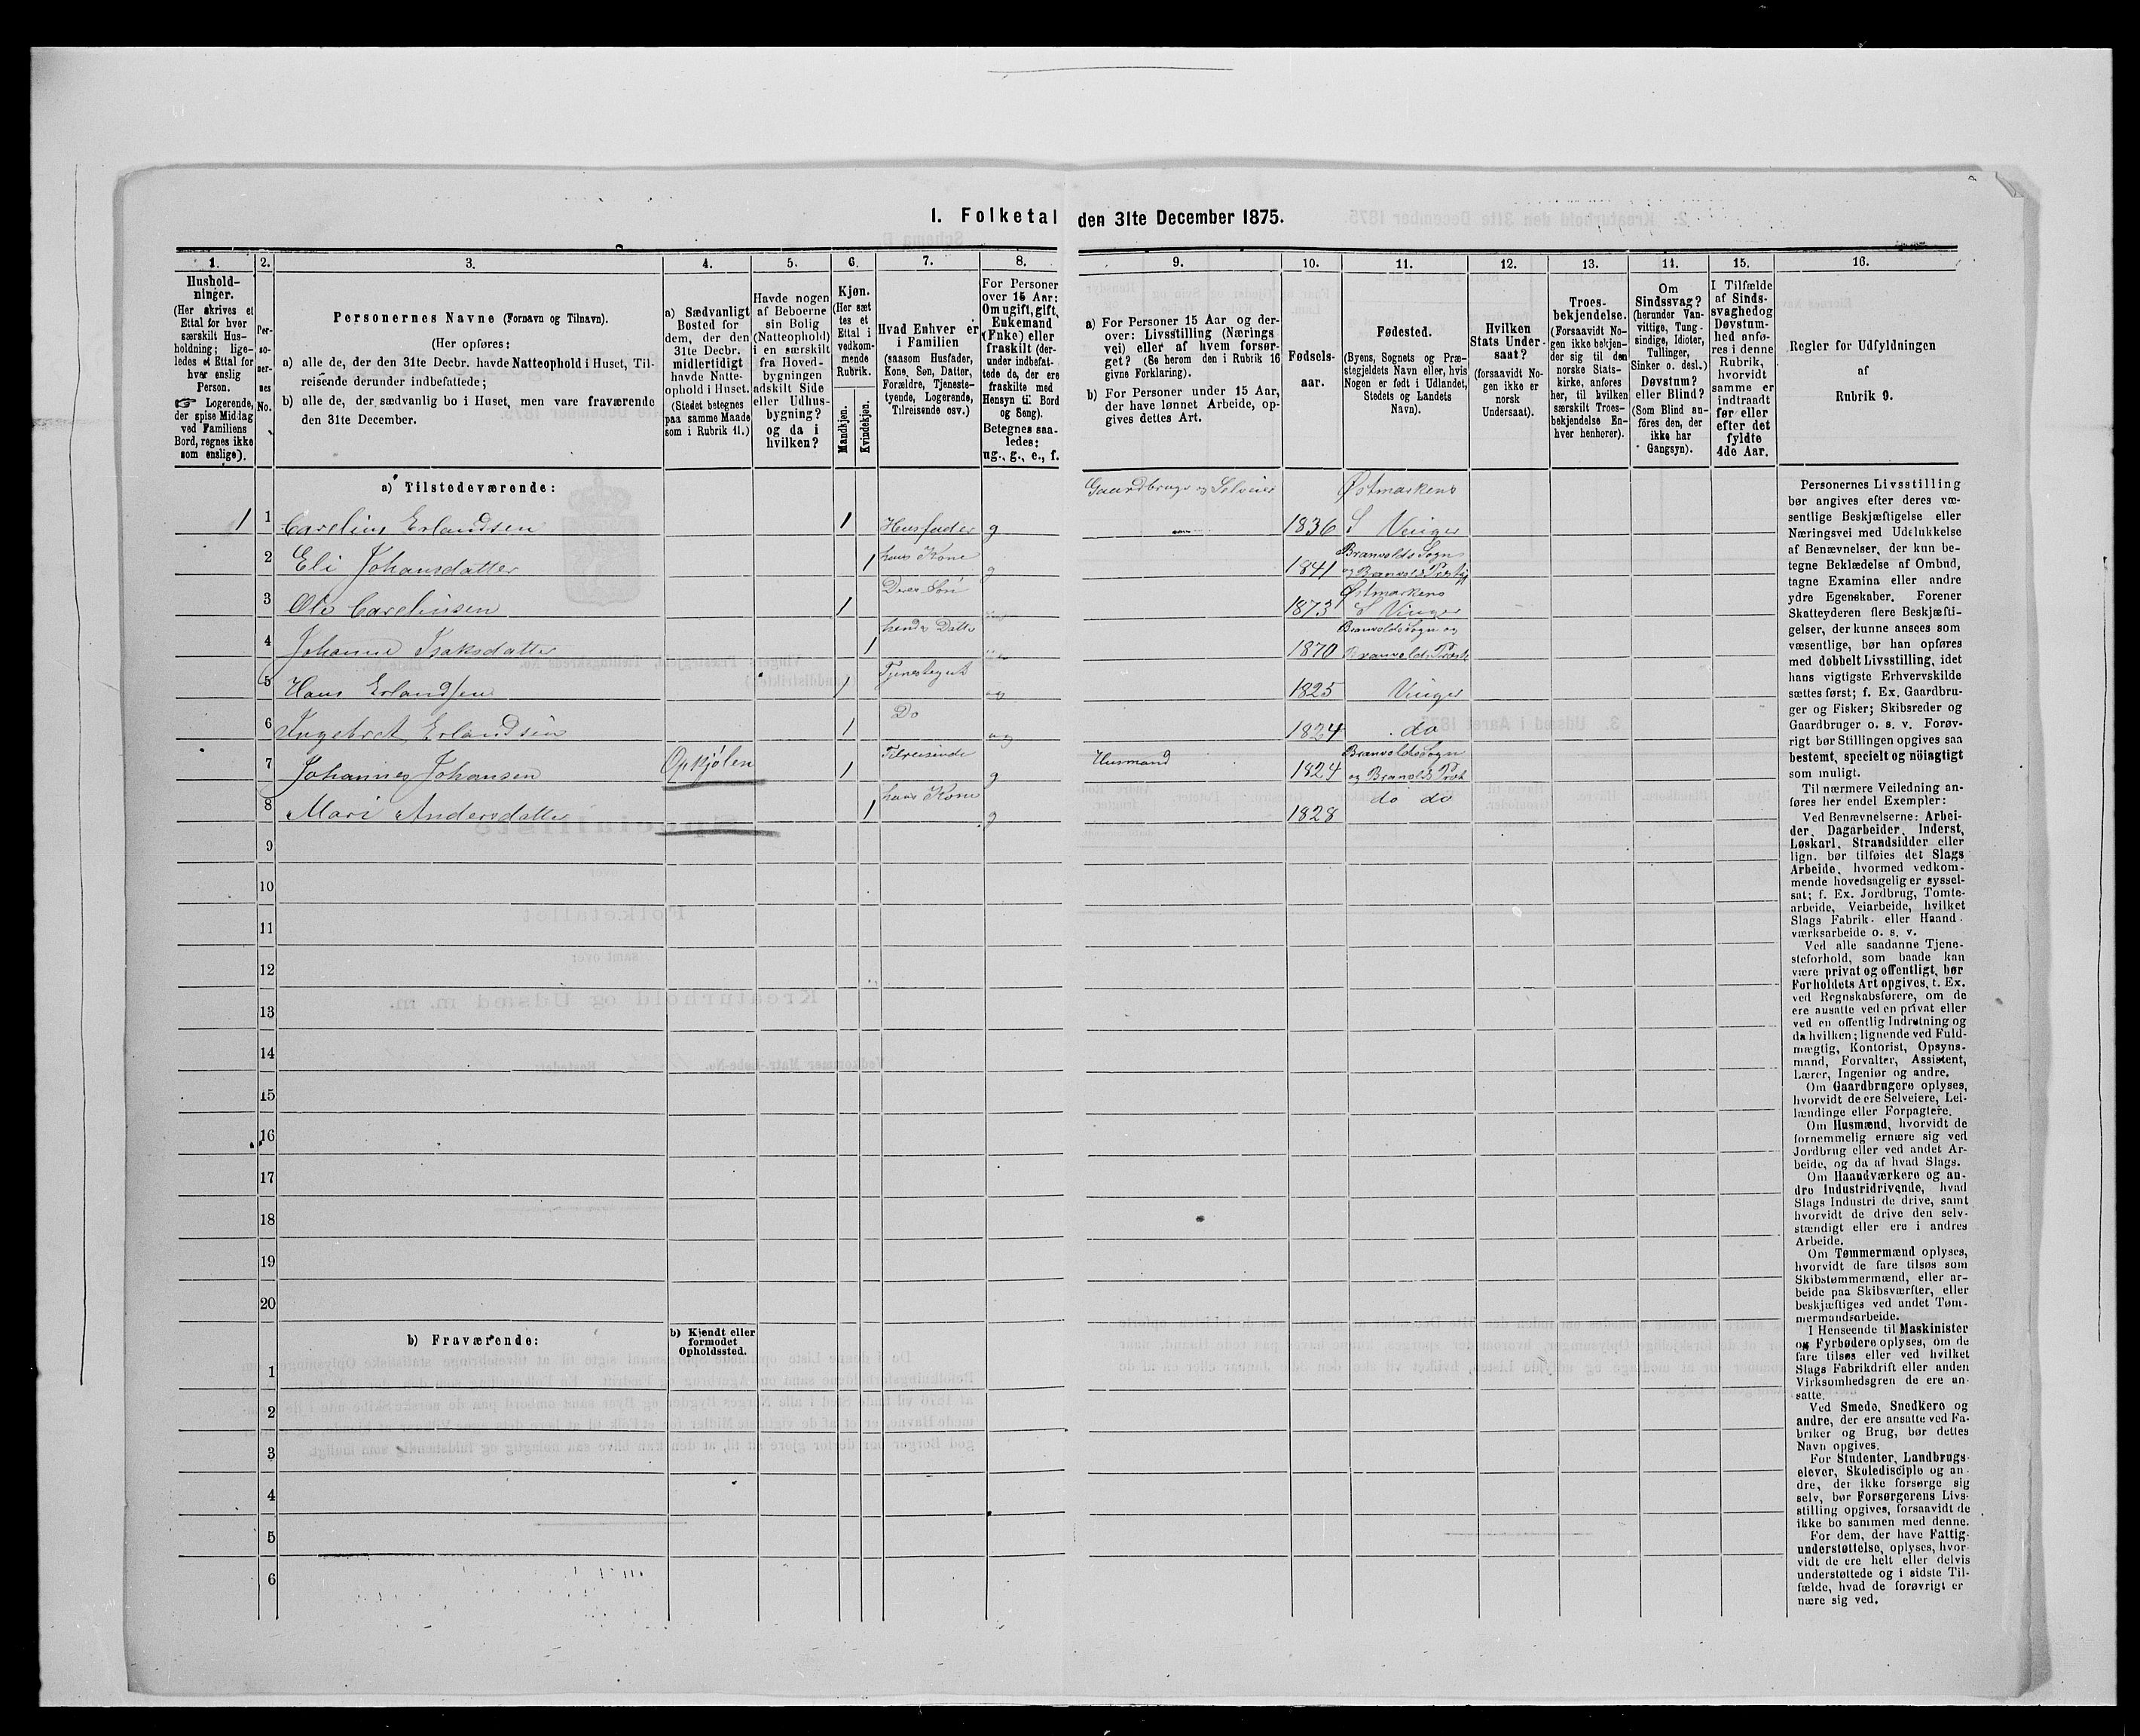 I. Folketal den 31te December 1875.
1.
Hushold-
ninger.
(Her skrives et
Ettal for hver
særskilt Hus-
holdning; lige-
ledes et Ettal for
hver enslig
Person.
☞ Logerende,
der spise Middag
ved Familiens
Bord, regnes ikke
som enslige).
2.
Per-
so-
ner-
nes
No.
3.
Personernes Navne (Fornavn og Tilnavn).
(Her opføres:
a) alle de, der den 31te Decbr. havde Natteophold i Huset, Til-
reisende derunder indbefattede;
b) alle de, der sædvanlig bo i Huset, men vare fraværende
den 31te December.
4.
a) Sædvanligt
Bosted for
dem, der den
31te Decbr.
midlertidigt
havde Natte-
ophold i Huset.
(Stedet betegnes
paa samme Maade
som i Rubrik 11.)
5.
Havde nogen
af Beboerne
sin Bolig
(Natteophold)
i en særskilt
fra Hoved-
bygningen
adskilt Side
eller Udhus-
bygning?
og da i
hvilken?
6.
Kjøn.
(Her sæt
tes et
Ettal i
vedkom-
mende
Rubrik.
Mandkjøn.
Kvindekjøn.
7.
Hvad Enhver er
i Familien
(saasom Husfader,
Kone, Søn, Datter,
Forældre, Tjeneste-
tyende, Logerende,
Tilreisende osv.)
8.
For Personer
over 15 Aar:
Om ugift, gift,
Enkemand
(Enke) eller
fraskilt (der-
under indbefat-
tede de, der ere
fraskilte med
Hensyn til Bord
og Seng).
Betegnes saa-
ledes:
ug., g., e., f.
9.
a) For Personer 15 Aar og der-
over: Livsstilling (Nærings
vei) eller af hvem forsør-
get? (Se herom den i Rubrik 16
givne Forklaring).
b) For Personer under 15 Aar,
der have lønnet Arbeide, op-
gives dettes Art.
10.
Fødsels-
aar.
11.
Fødested.
(Byens, Sognets og Præ-
stegjeldets Navn eller, hvis
Nogen er født i Udlandet,
Stedets og Landets
Navn).
12.
Hvilken
Stats Under-
saat?
(forsaavidt No-
gen ikke er
norsk
Undersaat).
13.
Troes-
bekjendelse.
(Forsaavidt No-
gen ikke bekjen-
der sig til den
norske Stats-
kirke, anføres
her, til hvilken
særskilt Troes-
bekjendelse En-
hver henhører).
14.
Om
Sindssvag?
(herunder Van-
vittige, Tung-
sindige, Idioter,
Tullinger,
Sinker o. desl.)
Døvstum?
eller Blind?
(Som Blind an-
føres den, der
ikke har
Gangsyn).
15.
I Tilfælde
af Sinds-
svaghed og
Døvstum-
hed anfø-
res i denne
Rubrik,
hvorvidt
samme er
indtraadt
før eller
efter det
fyldte
4de Aar.
16.
Regler for Udfyldningen
af
Rubrik 9.
a) Tilstedeværende:
1 1 Carelius Erlandsen 1 Husfader g Gaardbruger og Selveier 1836 Østmarkens S Vinger
2 Eli Johansdatter 1 hans Kone g 1841 Branvolds Sogn og Branvolds
3 Ole Careliusen 1 Deres Søn 1873 Østmarkens S Vinger
4 Johanne Isaksdatter 1 hendes Datter 1870 Branvolds Sogn og Branvolds
5 Hans Erlandsen 1 Tjenestegut ug 1825 Vinger
6 Ingebret Erlandsen 1 Do ug 1824 do
7 Johannes Johansen Opkjølen 1 Tilreisende g Husmand 1824 Branvolds Sogn og
8 Mari Andersdatter 1 hans Kone g 1828 do do
9
10
11
12
13
14
15
16
17
18
19
20
b) Fraværende:
b) Kjendt eller
formodet
Opholdssted.
1
2
3
4
5
6
Personernes Livsstilling
bør angives efter deres væ-
sentlige Beskjæftigelse eller
Næringsvei med Udelukkelse
af Benævnelser, der kun be-
tegne Beklædelse af Ombud,
tagne Examina eller andre
ydre Egenskaber. Forener
Skatteyderen flere Beskjæfti-
gelser, der kunne ansees som
væsentlige, bør han opføres
med dobbelt Livsstilling, idet
hans vigtigste Erhvervskilde
sættes først; f. Ex. Gaardbru-
ger og Fisker; Skibsreder og
Gaardbruger o. s. v. Forøv-
rigt bør Stillingen opgives saa
bestemt, specielt og nöiagtigt
som muligt.
Til nærmere Veiledning an-
føres her endel Exempler:
Ved Benævnelserne: Arbei-
der, Dagarbeider, Inderst,
Løskarl, Strandsidder eller
lign. bør tilføies det Slags
Arbeide, hvormed vedkom-
mende hovedsagelig er syssel-
sat; f. Ex. Jordbrug, Tomte-
arbeide, Veiarbeide, hvilket
Slags Fabrik- eller Haand-
værksarbeide o. s. v.
Ved alle saadanne Tjene-
steforhold, som baade kan
være privat og offentligt, bør
Forholdets Art opgives, t. Ex.
ved Regnskabsførere, om de
ere ansatte ved en privat eller
ved en offentlig Indretning og
da hvilken; lignende ved Fuld-
mægtig, Kontorist, Opsyns-
mand, Forvalter, Assistent,
Lærer, Ingeniør og andre.
Om Gaardbrugere oplyses,
hvorvidt de ere Selveiere, Lei-
lændinge eller Forpagtere.
Om Husmænd, hvorvidt de
fornemmelig ernære sig ved
Jordbrug eller ved andet Ar-
beide, og da af hvad Slags.
Om Haandværkere og an-
dre Industridrivende, hvad
Slags Industri de drive, samt
hvorvidt de drive den selv-
stændigt eller ere i andres
Arbeide.
Om Tømmermænd oplyses,
hvorvidt de fare tilsøs som
Skibstømmermænd, eller ar-
beide paa Skibsværfter, eller
beskjæftiges ved andet Tøm-
mermandsarbeide.
I Henseende til Maskinister
og Fyrbødere oplyses, om de
fare tilsøs eller ved hvilket
Slags Fabrikdrift eller anden
Virksomhedsgren de ere an-
satte.
Ved Smede, Snedkere og
andre, der ere ansatte ved Fa-
briker og Brug, bør dettes
Navn opgives.
For Studenter, Landbrugs-
elever, Skoledisciple og an-
dre, der ikke forsørge sig
selv, bør Forsørgerens Livs-
stilling opgives, forsaavidt de
ikke bo sammen med denne.
For dem, der have Fattig-
understøttelse, oplyses, hvor-
vidt de ere helt eller delvis
understøttede og i sidste Til-
fælde, hvad de forøvrigt er
nære sig ved.